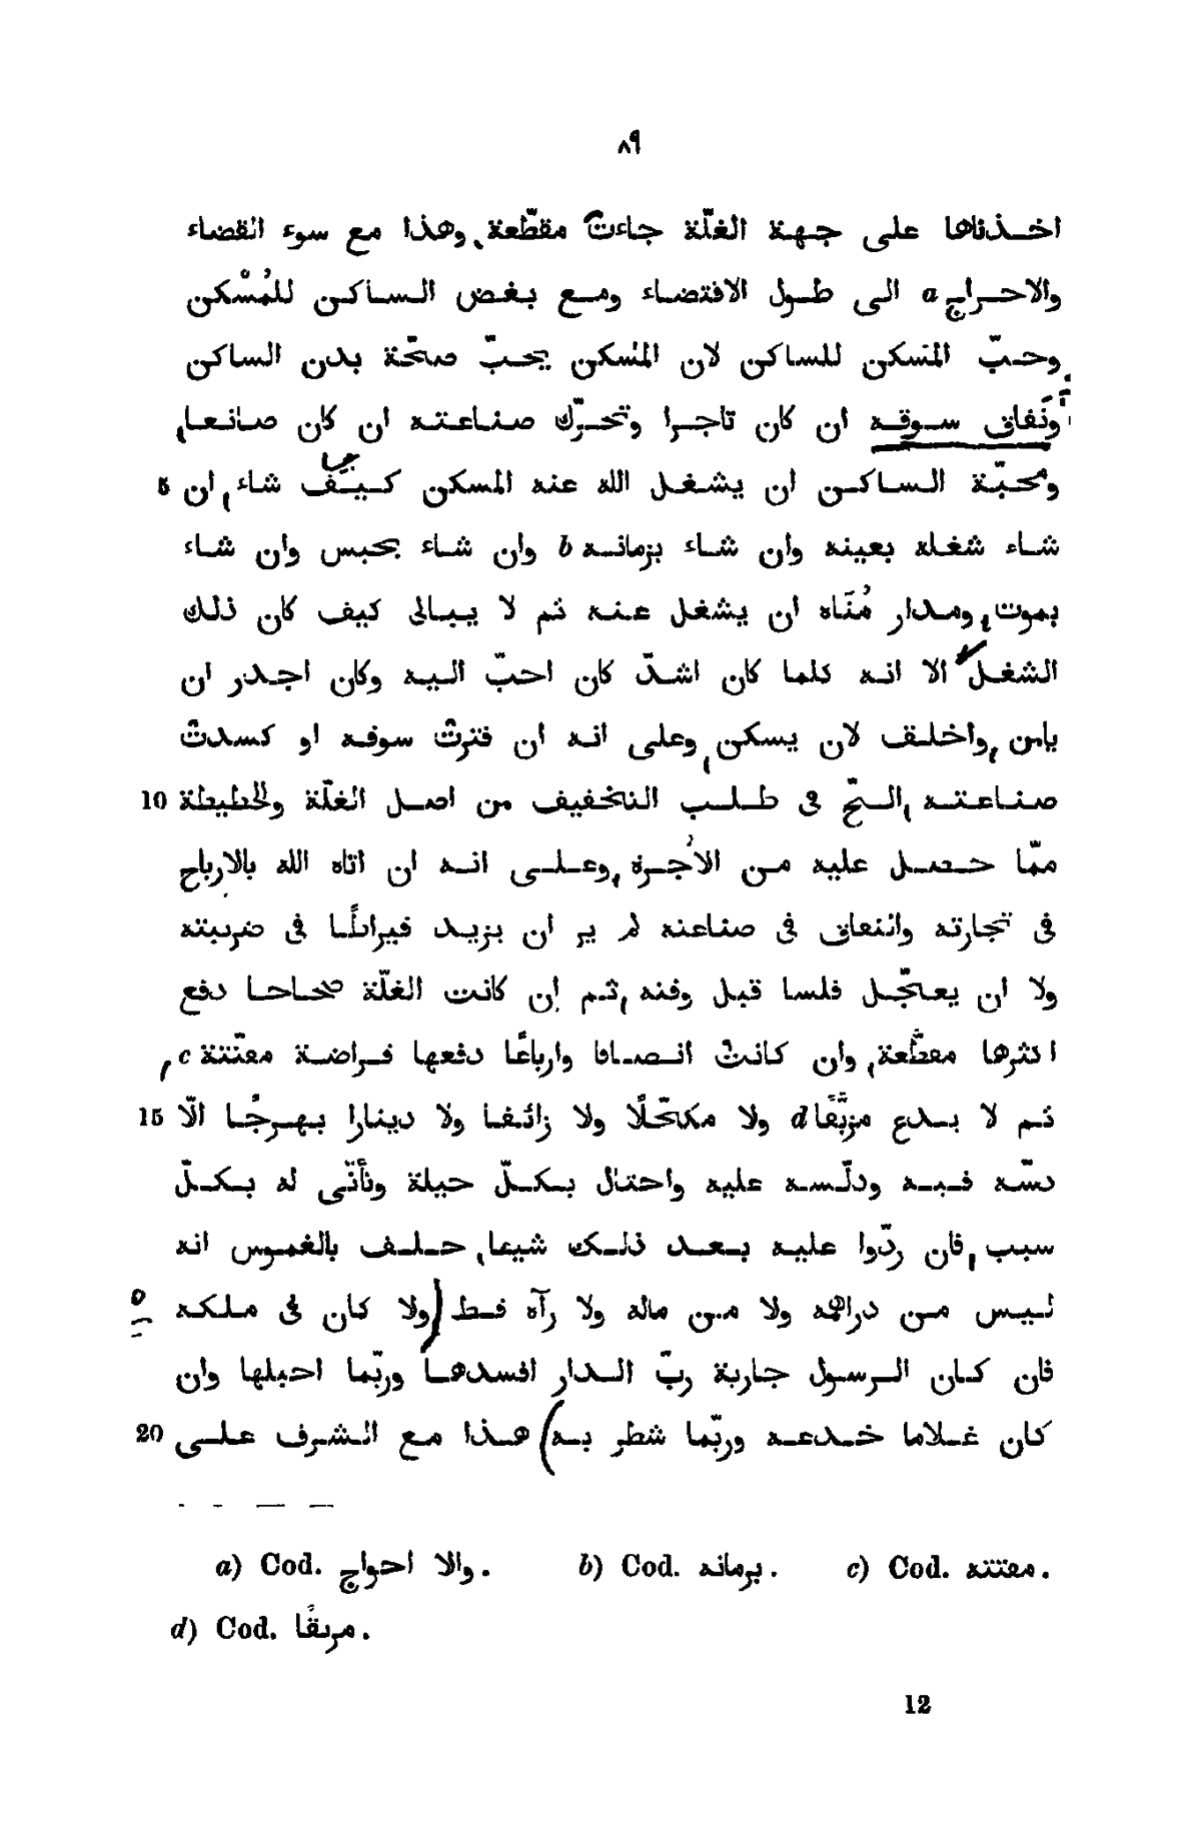 ٨٩
اخذناها على جهة الغلّة جاءت مقطّعة وهذا مع سوء القضاء
والاحراج a الى طول الاقتضاء ومع بغض الساكن للمُسْكن
وحبّ المسكن للساكن لان المسكن يحبّ صحّة بدن الساكن
ونَفاق سوقه ان كان تاجرا وتحرّك صناعته ان كان صانعا
ومحبّة الساكن ان يشغل الله عنه المسكن كيف شاء ان 5
شاء شغله بعينه وان شاء بزمانه b وان شاء بحبس وان شاء
بموت ومدار مُنَاه ان يشغل عنه ثم لا يبالى كيف كان ذلك
الشغل الا انه كلما كان اشدّ كان احبّ اليه وكان اجدر ان
يامن واخلق لان يسكن وعلى انه ان فترتْ سوقه او كسدتْ
صناعته الحّ فى طلب التخفيف من اصل الغلّة والحطيطة 10
ممّا حصل عليه من الاُجرة وعلى انه ان اتاه الله بالارباح
فى تجارته والنفاق فى صناعته لم ير ان يزيد قيراطًا فى ضريبته
ولا ان يعجّل فلسا قبل وقته ثم ان كانت الغلّة صحاحا دفع
اكثرها مقطّعة وان كانتْ انصافا وارباعًا دفعها قراضة مفتّتة c
ثم لا يدع مزبَّقًا d ولا مكحّلًا ولا زائفا ولا دينارا بهرجًا الّا
15
دسّه فيه ودلّسه عليه واحتال بكلّ حيلة وتأتّى له بكلّ
سبب فان ردّوا عليه بعد ذلك شيئا حلف بالغموس انه
ليس من دراهمه ولا من ماله ولا رآه قط ولا كان فى ملكه
فان كان الرسول جارية ربّ الدار افسدها وربّما احبلها وان
كان غلاما خدعه وربّما شطر به هذا مع الشرف على 20
a) Cod. والا احواج. b) Cod. برمانه. c) Cod. معتته.
d) Cod. مربقًا.
12